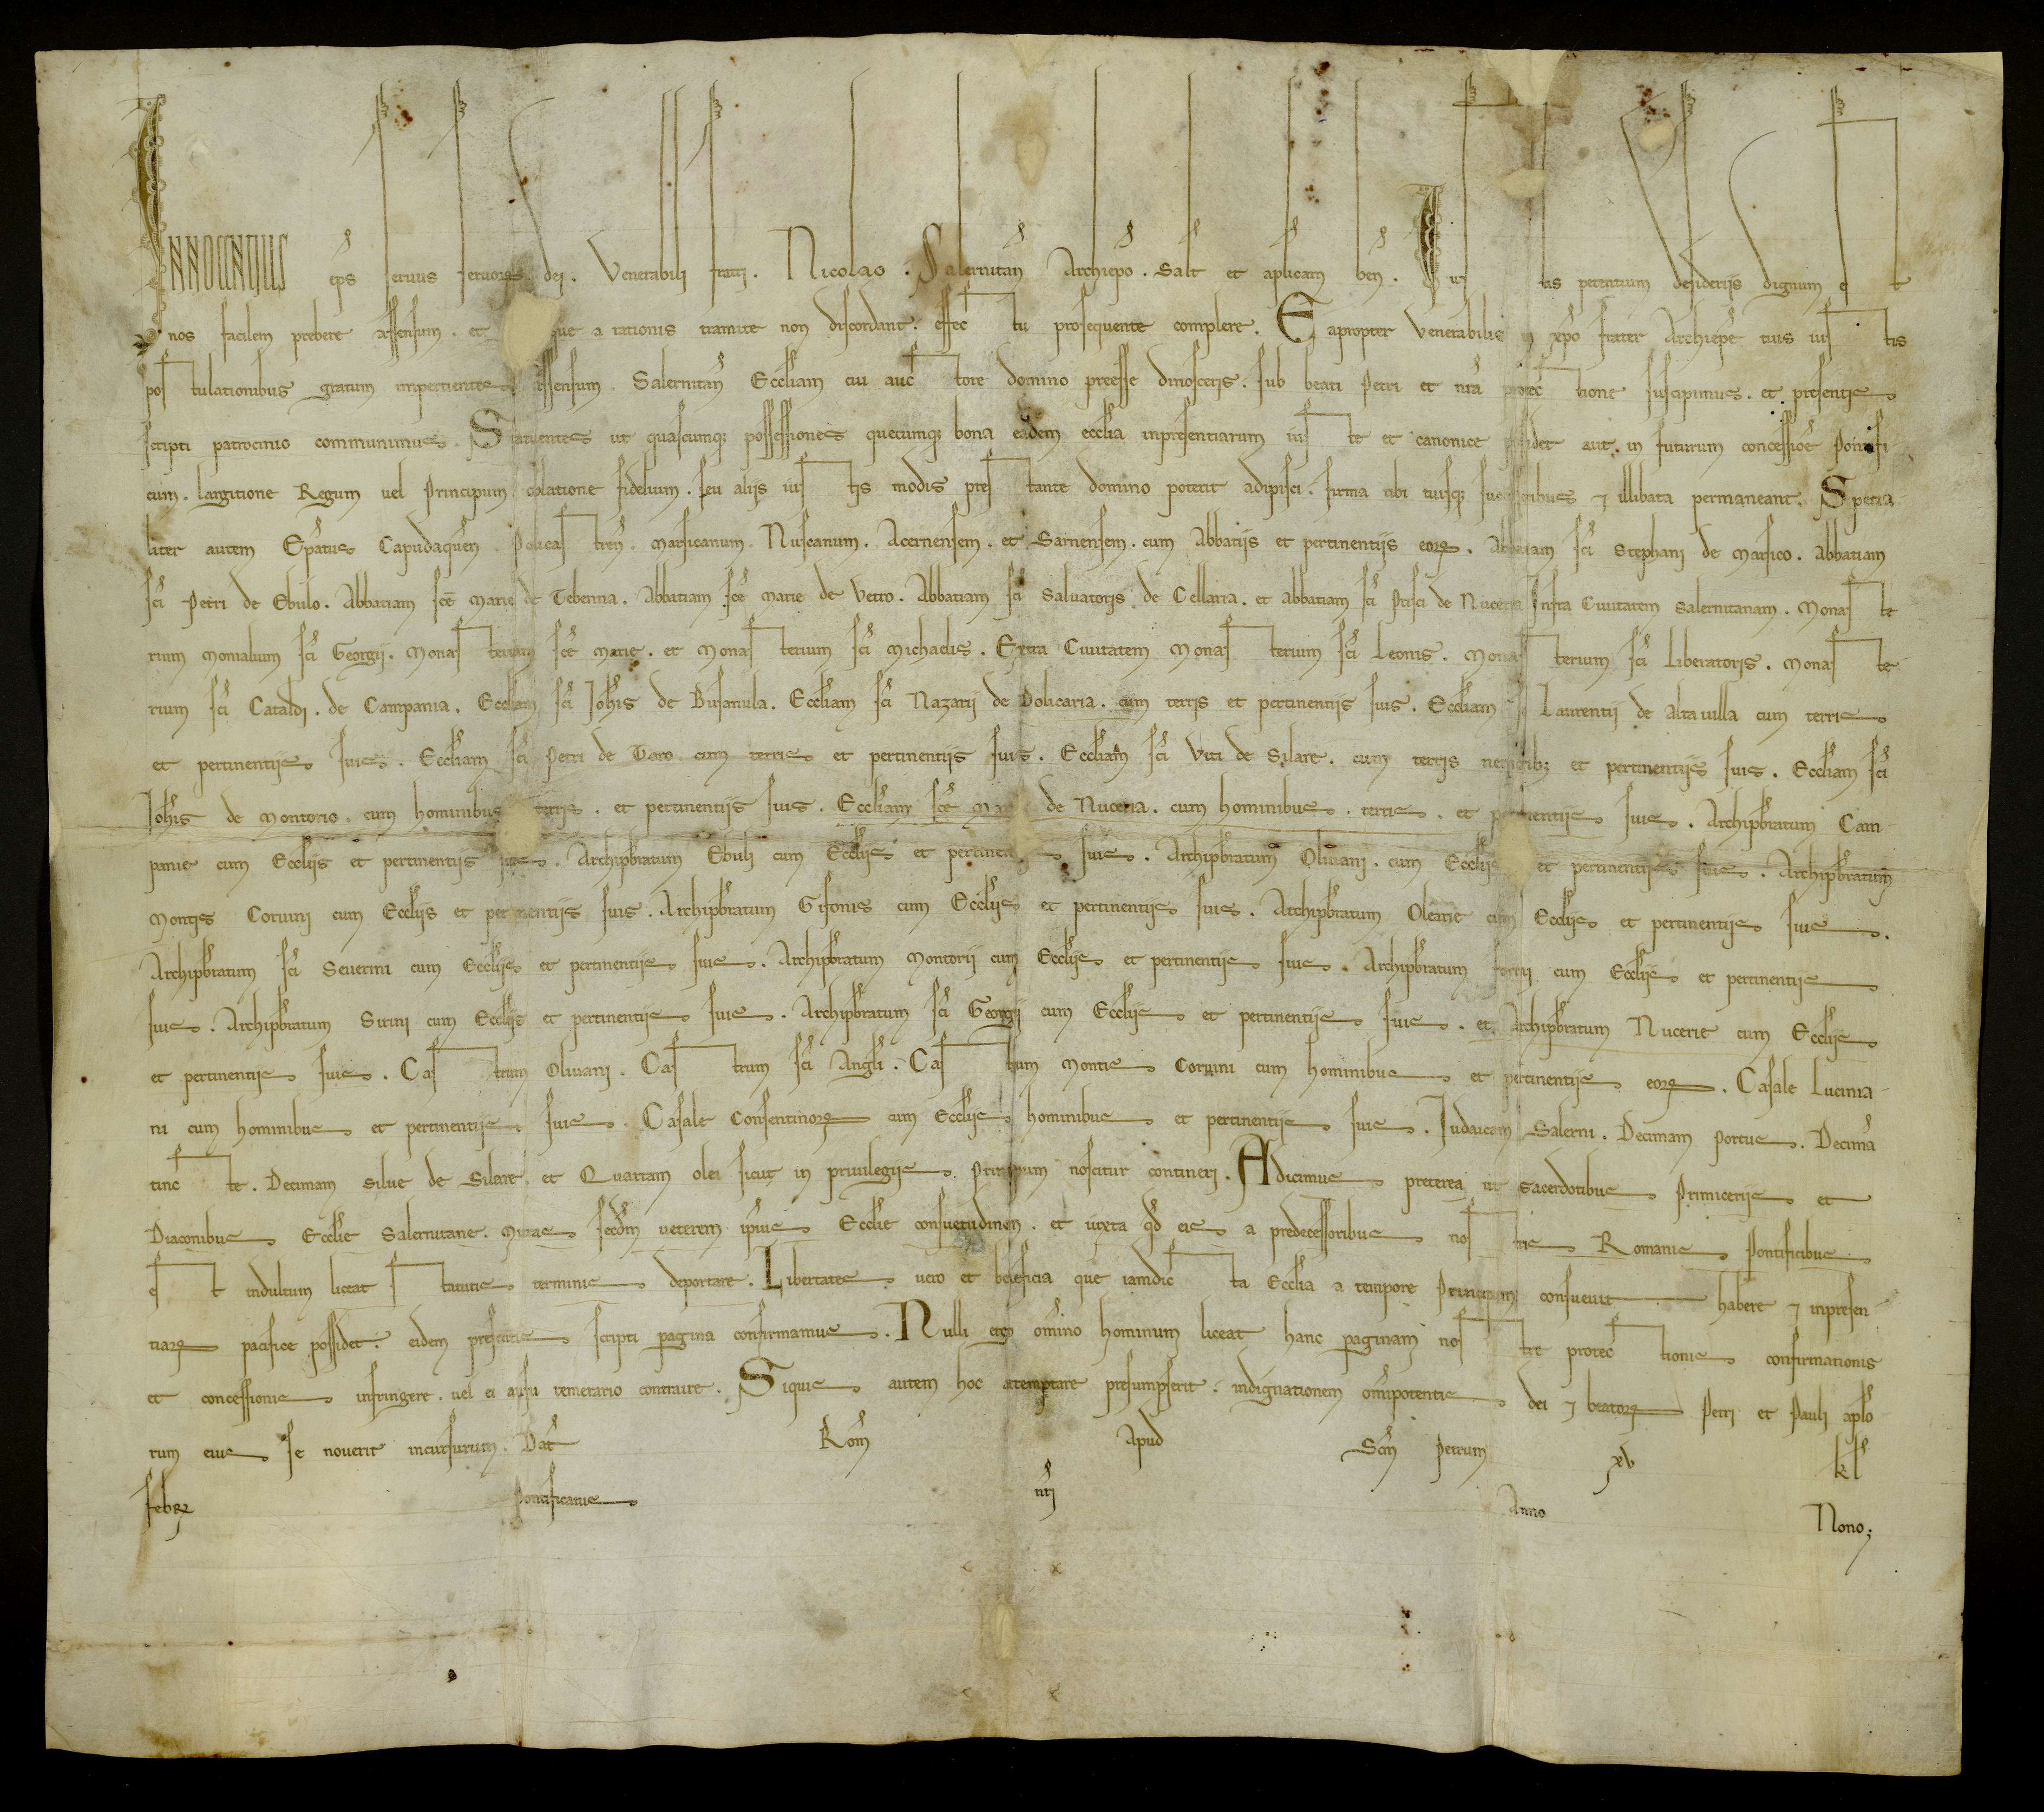 INNOCENTIUS ep̄s servus servoꝝ dei. Venerabili fratri. Nicolao. Salernitan̄ Archiep̄o. Salt̄ et ap̄licam ben̄. Iustis petentium desideriis dignum est
nos facilem prebere assensum. et que a rationis tramite non discordant. effectu prosequente complere. Eapropter Venerabilis in xp̄o frater Archiep̄e tuis iustis
postulationibus gratum impertientes assensum. Salernitan̄ Eccl̄iam cui auctore domino preesse dinosceris. sub beati Petri et nr̄a protectione suscipimus. et presentis
scripti patrocinio communimus. Statuentes ut quascumqꝫ possessiones quecumqꝫ bona eadem eccl̄ia inpresentiarum iuste et canonice possidet aut in futurum concessioē Pontifi
cum. largitione Regum vel Principum. oblatione fidelium. seu aliis iustis modis prestante domino poterit adipisci. firma tibi tuisqꝫ successoribus ⁊ illibata permaneant. Specia
liter autem Ep̄atus Capudaquen̄. Policastren̄. Marsicanum. Nuscanum. Acernensem. et Sarnensem. cum Abbatiis et pertinentiis eoꝝ. Abbatiam sc̄i Stephani de Marsico. Abbatiam
sc̄i Petri de Ebulo. Abbatiam sc̄e Marie de Tebenna. Abbatiam sc̄e Marie de Vetro. Abbatiam sc̄i Salvatoris de Cellaria. et abbatiam sc̄i Prisci de Nuceria. Infra Civitatem Salernitanam. Monaste
rium Monialium sc̄i Georgii. Monasterium sc̄e Marie. et Monasterium sc̄i Michaelis. Extra Civitatem Monasterium sc̄i Leonis. Monasterium sc̄i Liberatoris. Monaste
rium sc̄i Cataldi. de Campania. Eccl̄iam sc̄i Ioh̄is de Busanula. Eccl̄iam sc̄i Nazarii de Dolicaria. cum terris et pertinentiis suis. Eccl̄iam Laurentii de altavilla cum terris
et pertinentiis suis. Eccl̄iam sc̄i Petri de Toro cum terris et pertinentiis suis. Eccl̄iam sc̄i Viti de Silare. cum terris et pertinentiis suis. Eccl̄iam sc̄i
Ioh̄is de Montorio. cum hominibus terris. et pertinentiis suis. Eccl̄iam sc̄e Marie de Nuceria. cum hominibus. terris. et pertinentiis suis. Archipb̄ratum Cam
panie cum Eccl̄iis et pertinentiis suis. Archipb̄ratum Ebuli cum Eccl̄iis et pertinentiis suis. Archipb̄ratum Olivani. cum Eccl̄iis et pertinentiis suis. Archipb̄ratum
Montis Corvini cum Eccl̄iis et pertinentiis suis. Archipb̄ratum Gifonis cum Eccl̄iis et pertinentiis suis. Archipb̄ratum Olearie cum Eccl̄iis et pertinentiis suis.
Archipb̄ratum sc̄i Severini cum Eccl̄iis et pertinentiis suis. Archipb̄ratum Montorii cum Eccl̄iis et pertinentiis suis. Archipb̄ratum cum Eccl̄iis et pertinentiis
suis. Archipb̄ratum Sirini cum Eccl̄iis et pertinentiis suis. Archipb̄ratum sc̄i Georgii cum Eccl̄iis et pertinentiis suis. et Archipb̄ratum Nucerie cum Eccl̄iis
et pertinentiis suis. Castrum Olivani. Castrum sc̄i Angl̄i. Castrum Montis Corvini cum hominibus et pertinentiis eoꝝ. Casale Lucinia
ni cum hominibus et pertinentiis suis. Casale Consentinoꝝ cum Eccl̄iis hominibus et pertinentiis suis. Iudaicam Salerni. Decimam Portus. Decimā
tincte. Decimam silve de Silare. et Quartam olei sicut in privilegiis Principum noscitur contineri. Adicimus preterea ut Sacerdotibus Primiceriis et
Diaconibus Eccl̄ie Salernitane. Mitras sc̄dm veterem ip̄ius Eccl̄ie consuetudinem. et iuxta qd̄ eis a predecessoribus nostris Romanis Pontificibus
est indultum liceat statutis terminis deportare. Libertates vero et beneficia que iamdicta Eccl̄ia a tempore Principum consuevit habere ⁊ inpresen
tiaꝝ pacifice possidet. eidem presentis scripti pagina confirmamus. Nulli ergo om̄ino hominum liceat hanc paginam nostre protectionis confirmationis
et concessionis infringere. vel ei ausu temerario contraire. Siquis autem hoc atemptare presumpserit. indignationem om̄ipotentis dei ⁊ beatoꝝ Petri et Pauli ap̄lo
rum eius se noverit incursurum. Dat̄ Rom̄ apud Scm̄ Petrum xv kl̄
Febrꝝ Pontificatus nr̄i Anno Nono;